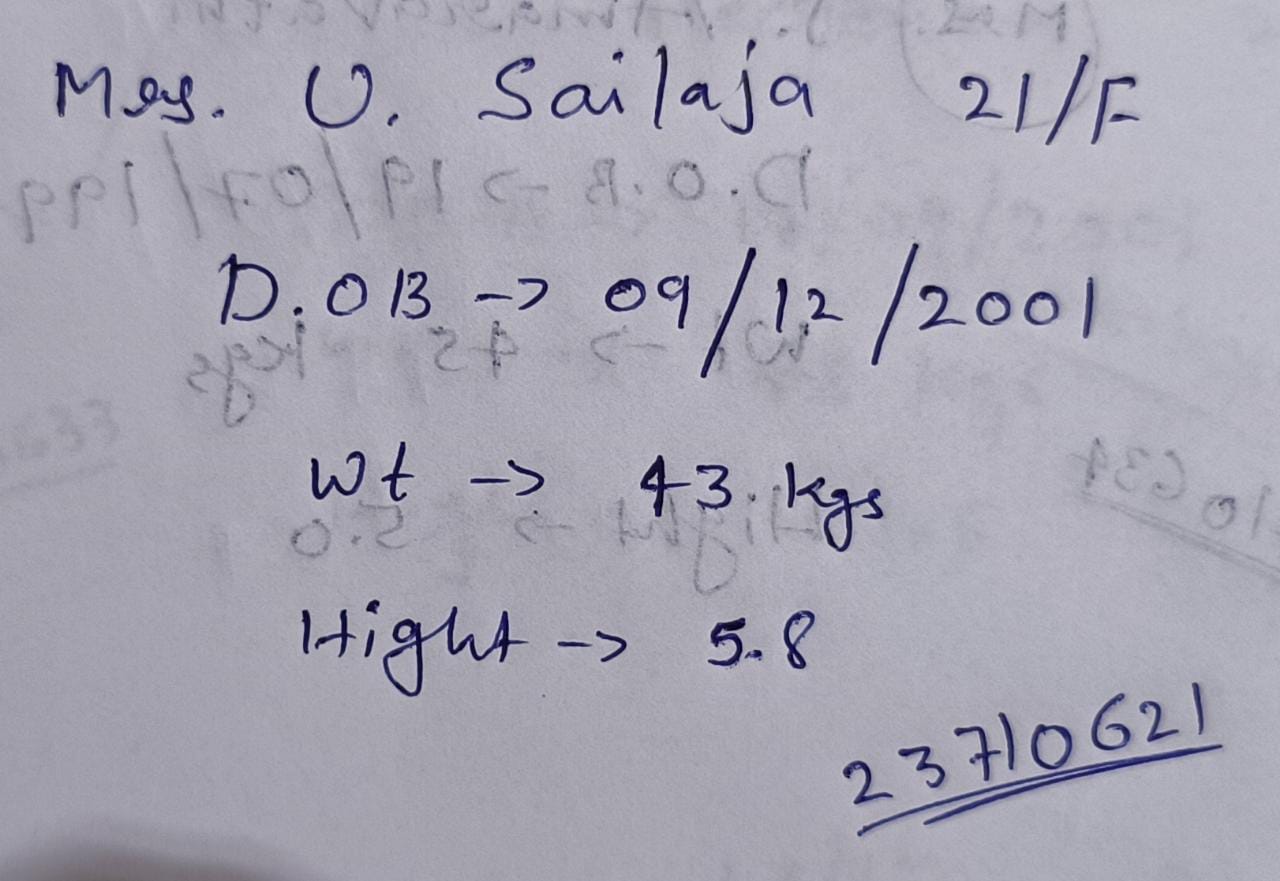 Mrs. U. Sailaja 21/F
D.OB -> 09/12/2001
Wt -> 43. kgs
Hight -> 5.8
23710621